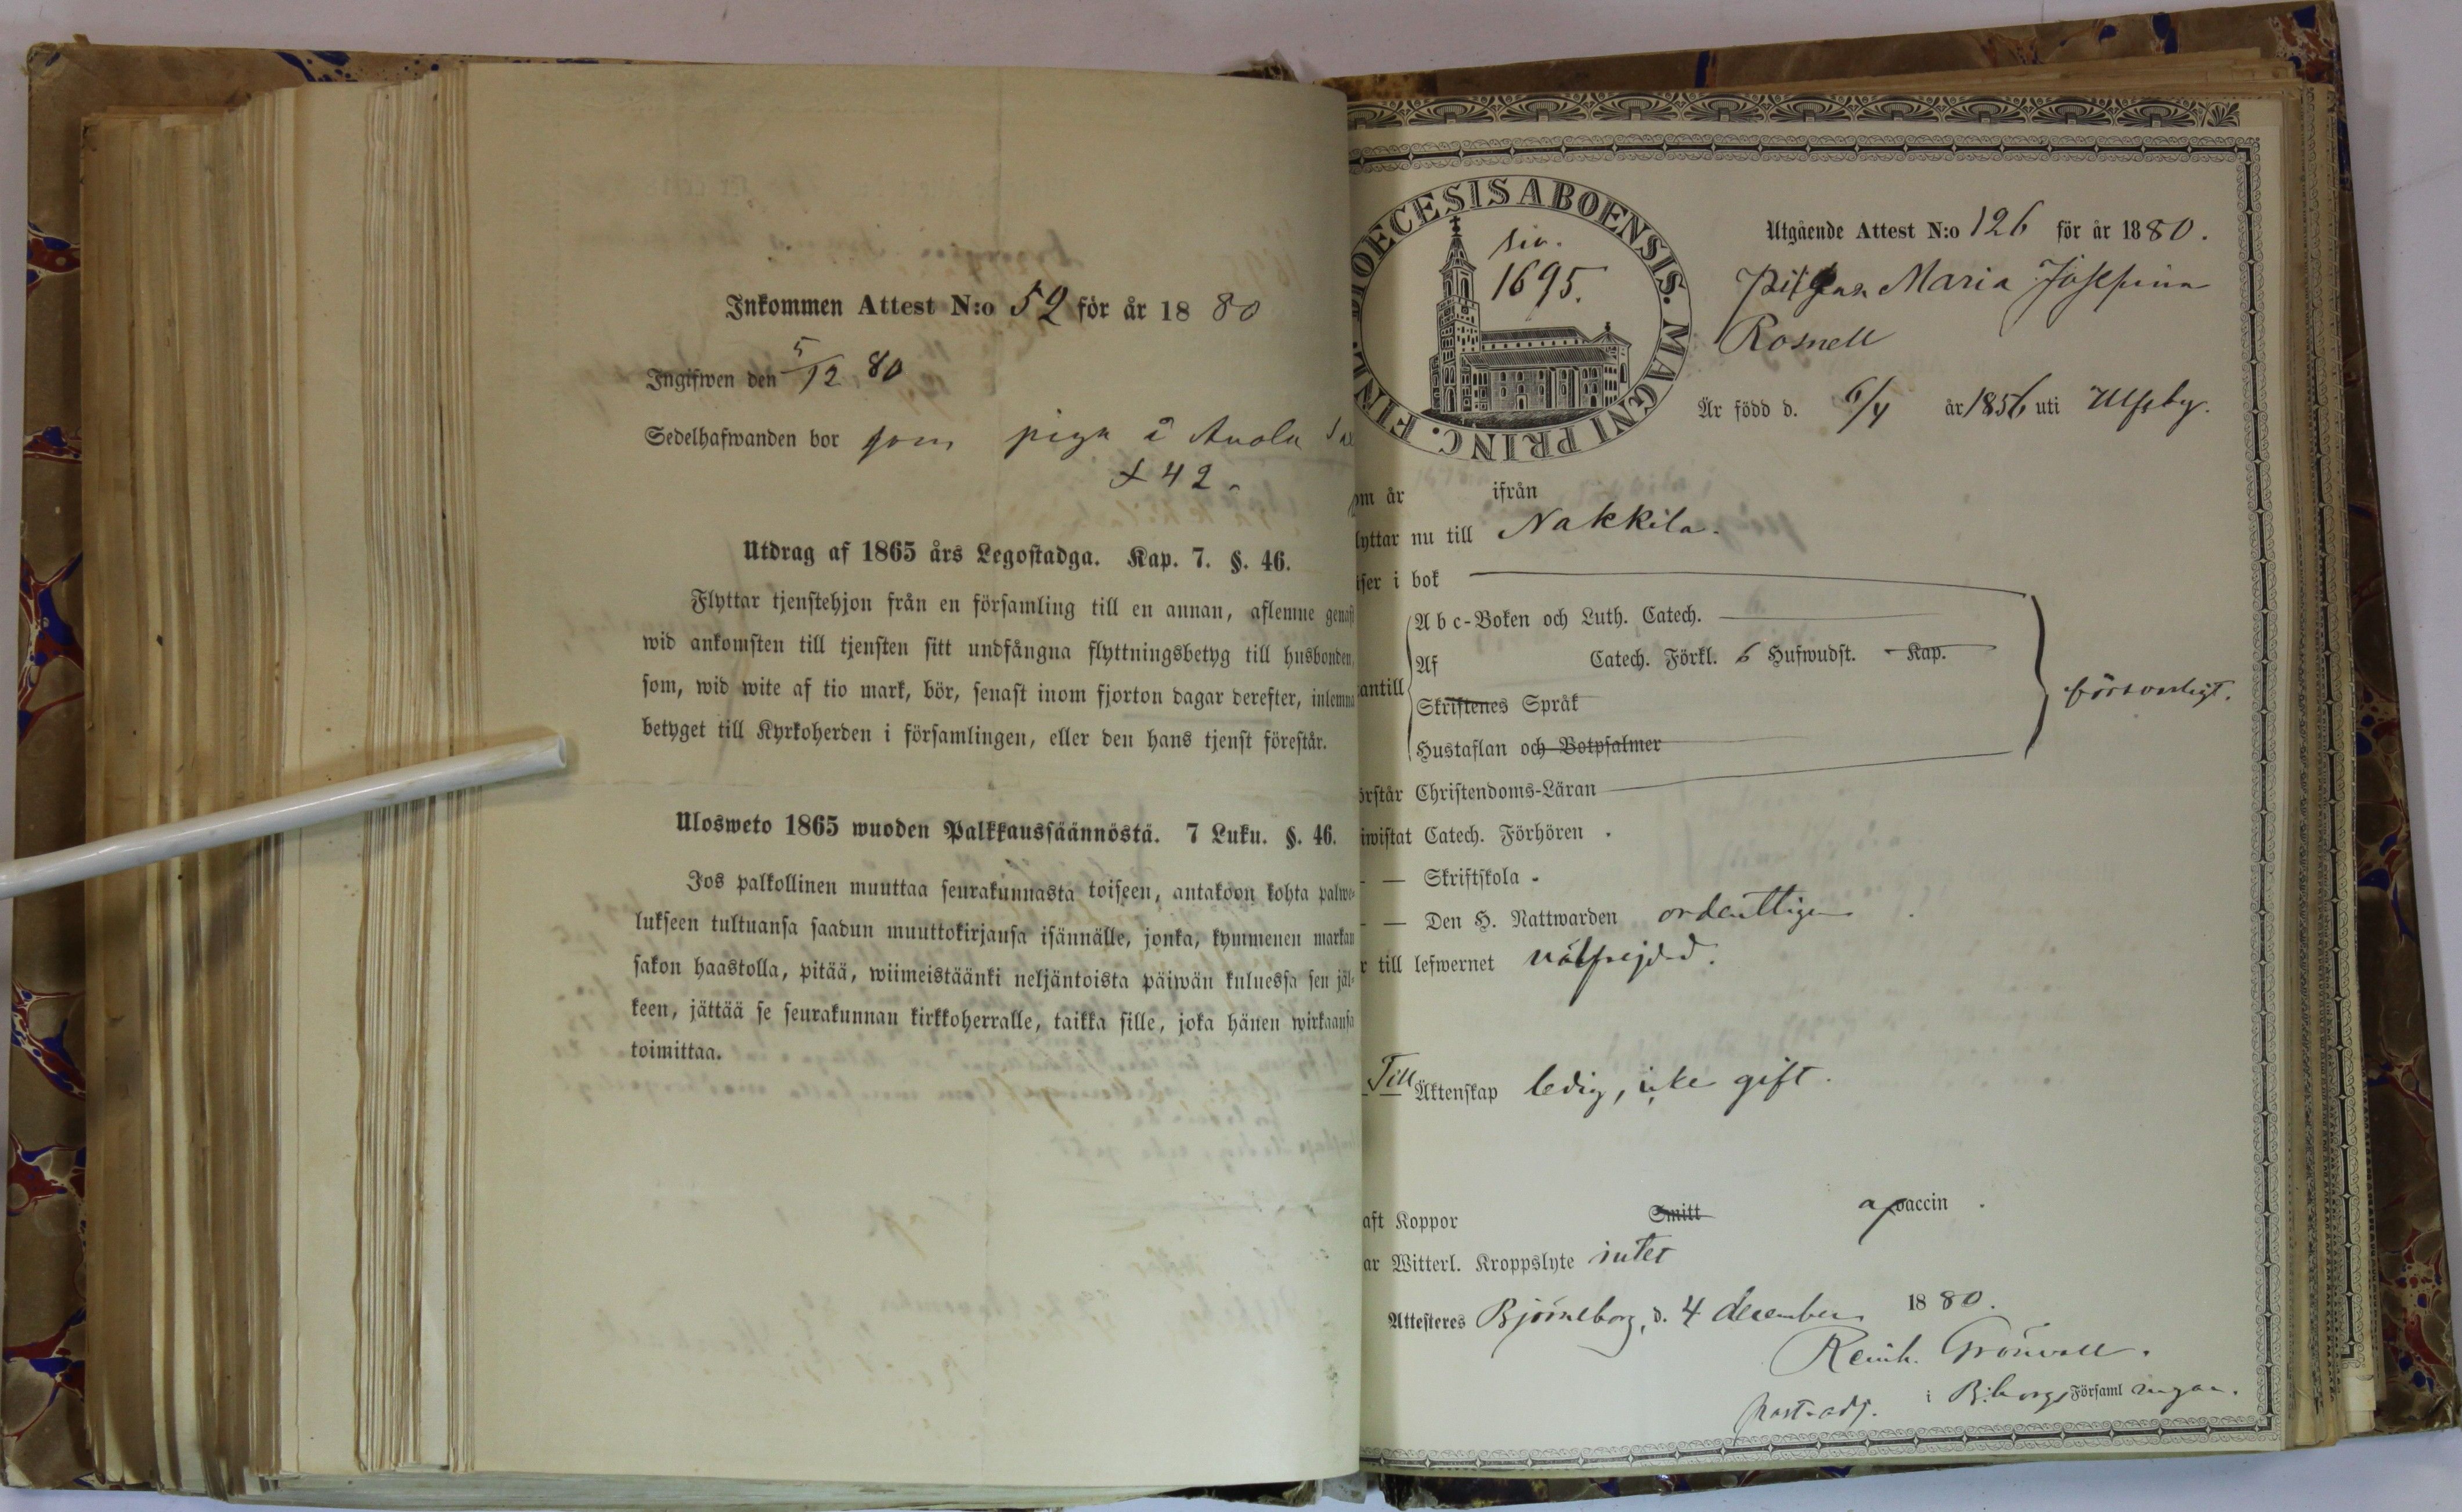 Inkommen Attest N:o 52 för år 1880
Ingifwen den 5/12 80
Sedelhafwanden bor som piga i Anola
+ 42.
Utdrag af 1865 års Legostadga. Kap. 7. §. 46.
Flyttar tjenstehjon från en församling till en annan, aflemne genast
wid ankomsten till tjensten sitt undfångna flyttningsbetyg till husbonden,
som, wid wite af tio mark, bör, senast inom fjorton dagar derefter, inlemna
betyget till Kyrkoherden i församlingen, eller den hans tjenst förestår.
Ulosweto 1865 wuoden Palkkaussäännöstä. 7 Luku. §. 46.
Jos palkollinen muuttaa seurakunnasta toiseen, antakoon kohta palwe-
lukseen tultuansa saadun muuttokirjansa isännälle, jonka, kymmenen markan
sakon haastolla, pitää, wiimeistäänki neljäntoista päiwän kuluessa sen jäl-
keen, jättää se seurakunnan kirkkoherralle, taikka sille, joka hänen wirkaansa
toimittaa.
DIOECESIS ABOENSIS. MAGNI PRINC. FINL.
1695.
Utgående Attest N:o 126 för år 1880.
Pigan Maria Josefina
Rosnell
Är född d. 6/4 år 1856 uti Ulfsby.
om år ifrån
lyttar nu till Nakkila.
iser i bok
Abc-Boken och Luth. Catech.
Af Catech. Förkl. 6 Hufwudst. Kap.
antill
Skriftenes Språk
försvarligt.
Hustaflan och Botpsalmer
örstår Christendoms-Läran
iwistat Catech. Förhören .
— — Skriftskola .
— — Den H. Nattwarden ordentligen
r till lefwernet välfrejdad.
Till Äktenskap ledig, icke gift.
aft Koppor Smitt vaccin .
ar Witterl. Kroppslyte intet
Attesteres Björneborg, d. 4 december 1880.
Reinh. Grönvall.
past. adj. i B:borgs Församlingar.